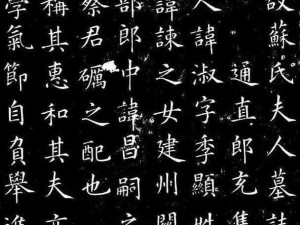 故蘇氏夫人墓誌
通直郎充集
人諱淑字季顯姓
諱諫之女建州關
部郎中諱昌嗣之
祭君礪之配也
稱其惠和其夫亦
學氣節自負舉進